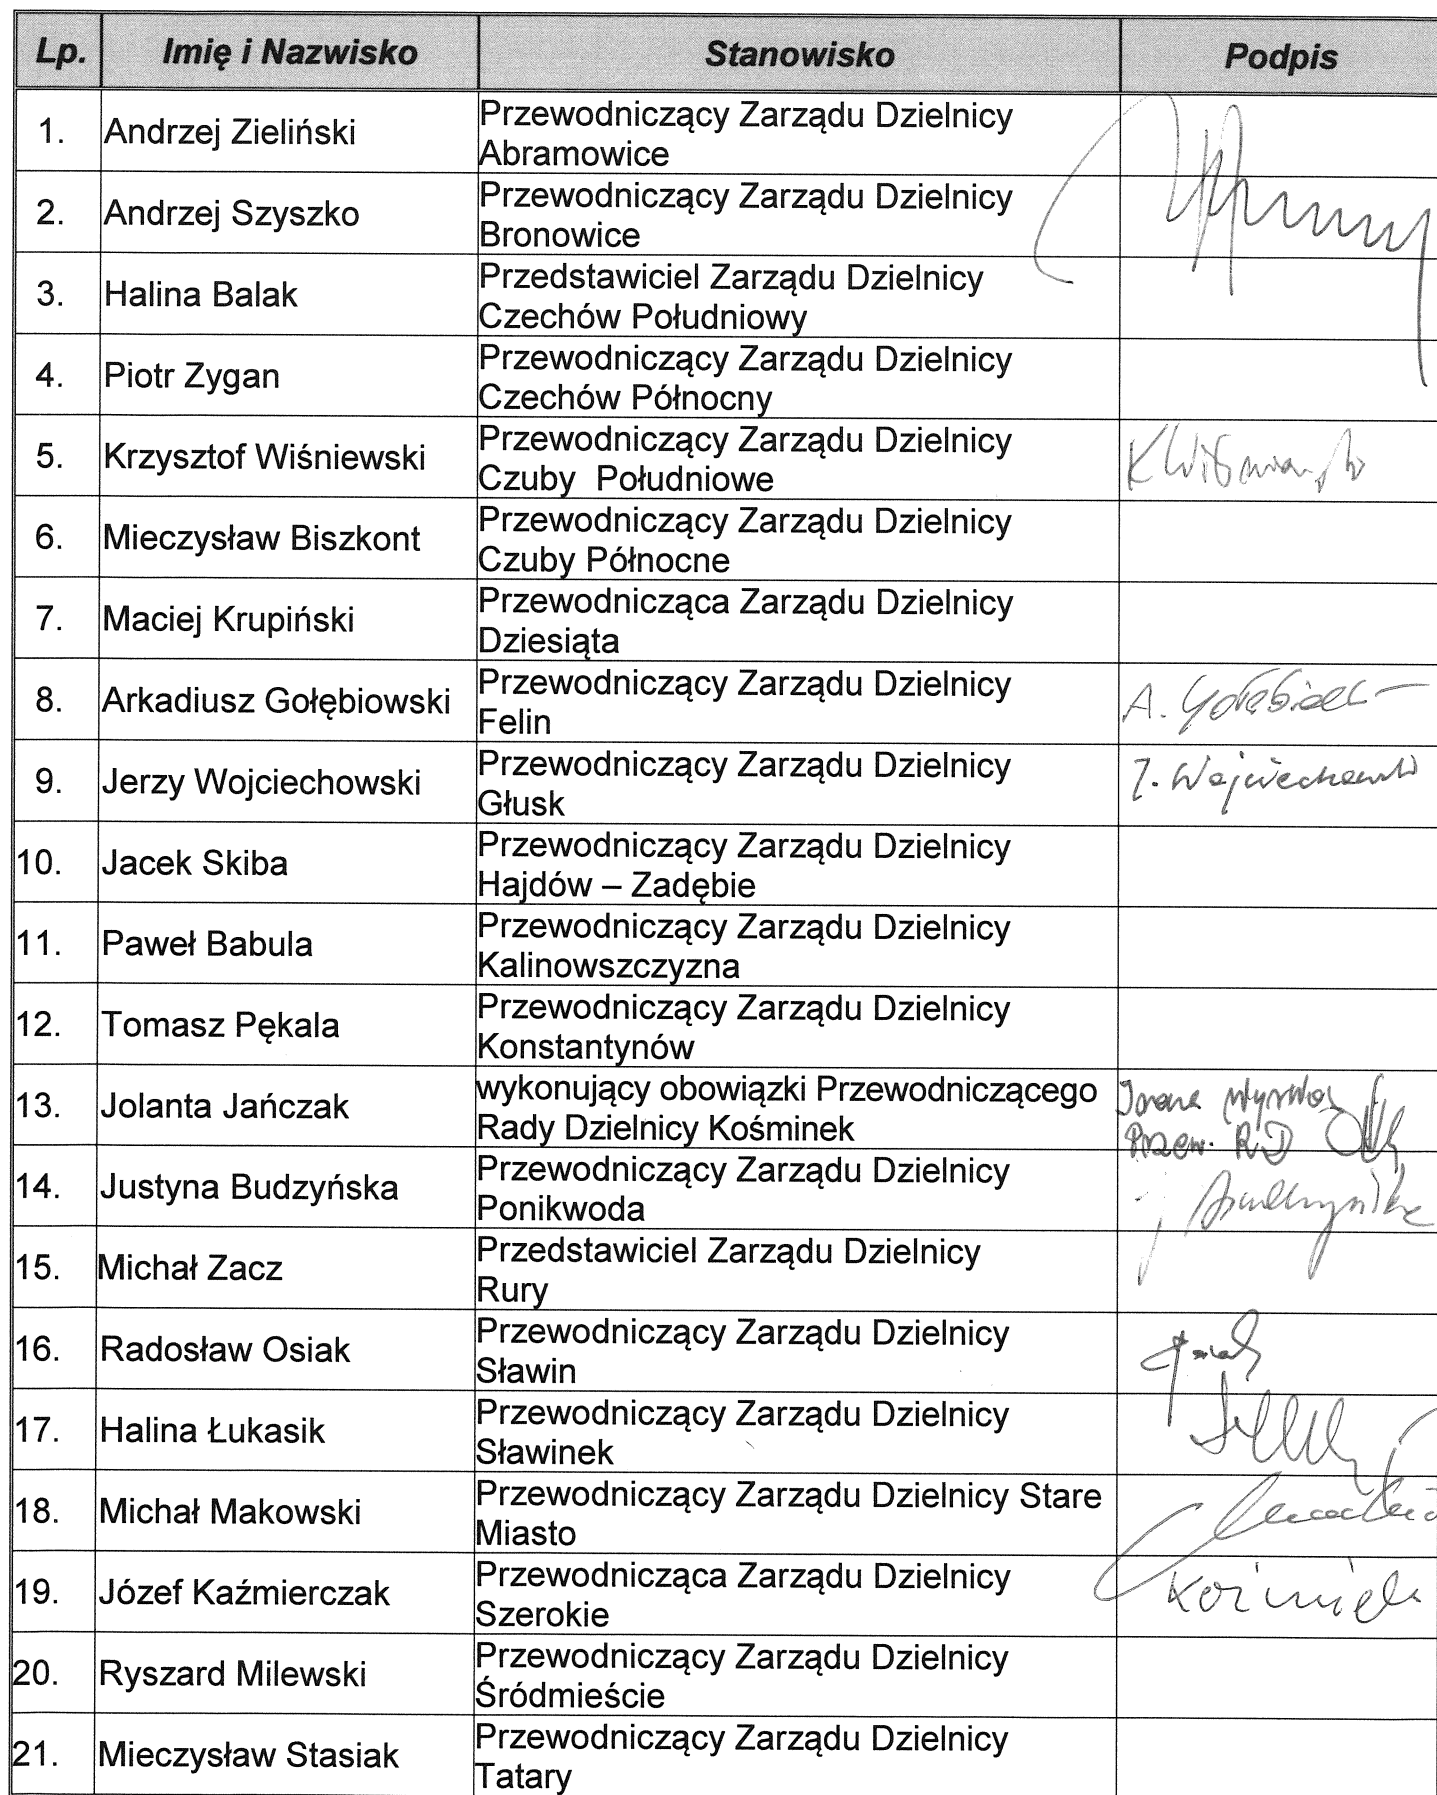 Lp. Imię i Nazwisko Stanowisko Podpis
1. Andrzej Zieliński Przewodniczący Zarządu Dzielnicy
Abramowice
2. Andrzej Szyszko Przewodniczący Zarządu Dzielnicy
Bronowice
3. Halina Balak Przedstawiciel Zarządu Dzielnicy
Czechów Południowy
4. Piotr Zygan Przewodniczący Zarządu Dzielnicy
Czechów Północny
5. Krzysztof Wiśniewski Przewodniczący Zarządu Dzielnicy
Czuby Południowe
6. Mieczysław Biszkont Przewodniczący Zarządu Dzielnicy
Czuby Północne
7. Maciej Krupiński Przewodnicząca Zarządu Dzielnicy
Dziesiąta
8. Arkadiusz Gołębiowski Przewodniczący Zarządu Dzielnicy
Felin
9. Jerzy Wojciechowski Przewodniczący Zarządu Dzielnicy J. Wojciechowski
Głusk
10. Jacek Skiba Przewodniczący Zarządu Dzielnicy
Hajdów – Zadębie
11. Paweł Babula Przewodniczący Zarządu Dzielnicy
Kalinowszczyzna
12. Tomasz Pękala Przewodniczący Zarządu Dzielnicy
Konstantynów
13. Jolanta Jańczak wykonujący obowiązki Przewodniczącego
Rady Dzielnicy Kośminek Przew. RD
14. Justyna Budzyńska Przewodniczący Zarządu Dzielnicy
Ponikwoda
15. Michał Zacz Przedstawiciel Zarządu Dzielnicy
Rury
16. Radosław Osiak Przewodniczący Zarządu Dzielnicy
Sławin
17. Halina Łukasik Przewodniczący Zarządu Dzielnicy
Sławinek
18. Michał Makowski Przewodniczący Zarządu Dzielnicy Stare
Miasto
19. Józef Kaźmierczak Przewodnicząca Zarządu Dzielnicy
Szerokie
20. Ryszard Milewski Przewodniczący Zarządu Dzielnicy
Śródmieście
21. Mieczysław Stasiak Przewodniczący Zarządu Dzielnicy
Tatary